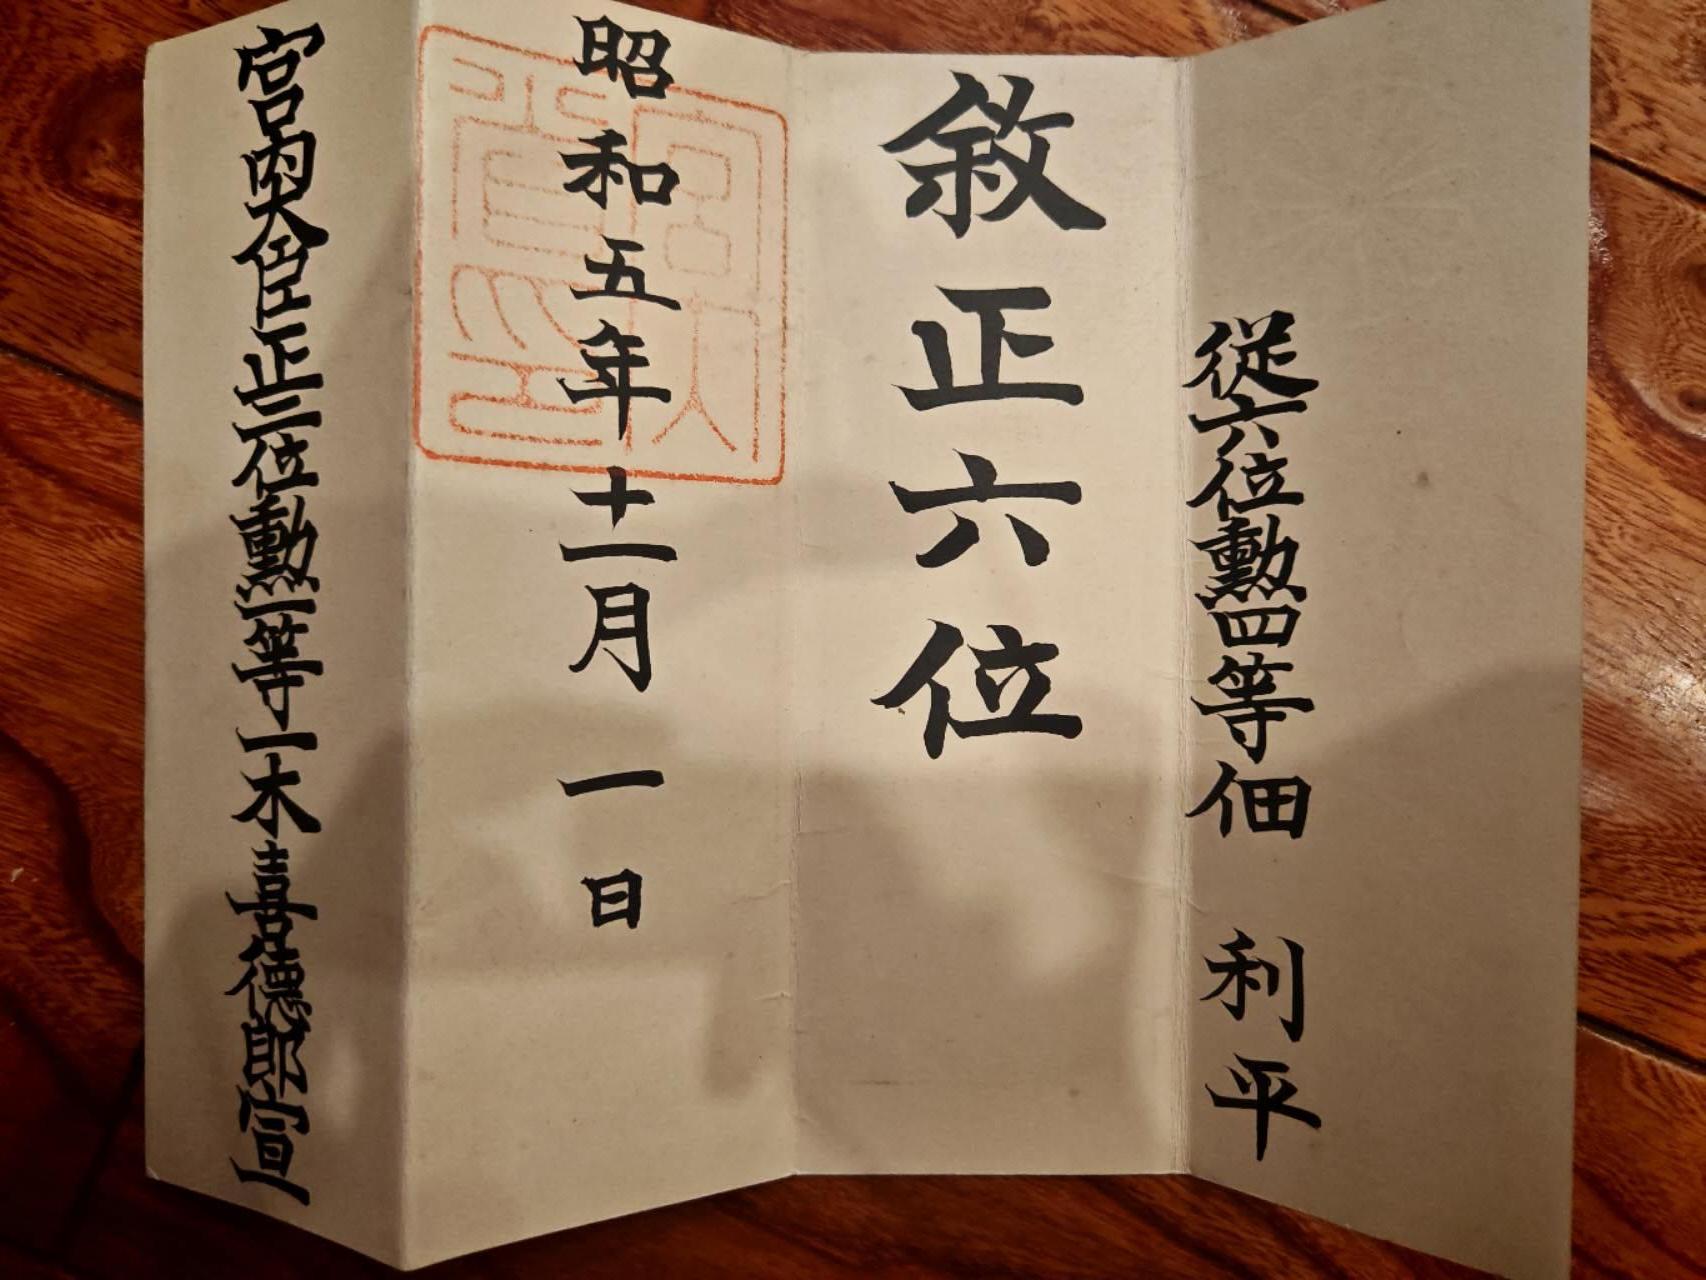 従六位勲四等佃 利平
敘正六位
昭和五年十一月一日
宮内大臣正二位勲一等一木喜徳郎宣
宮内省印